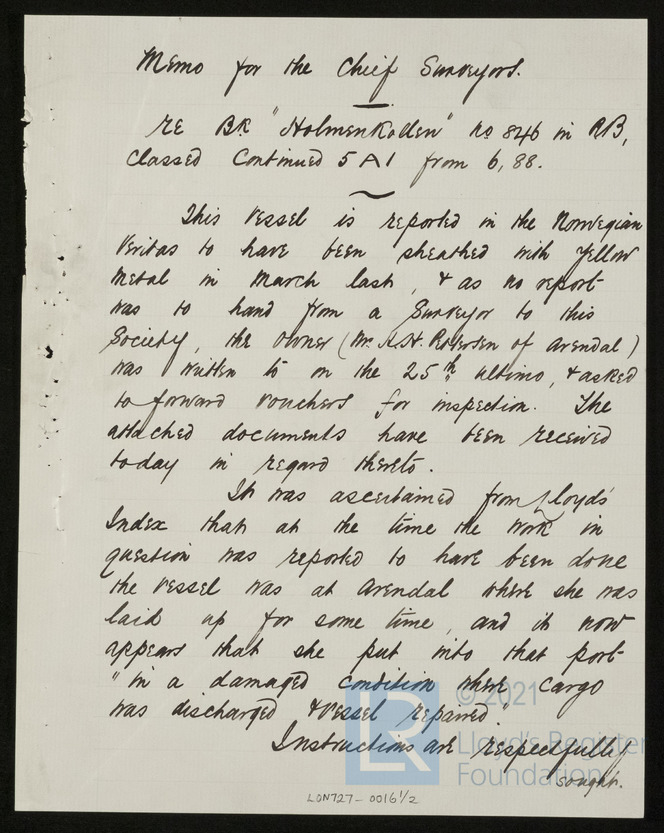 Memo for the Chief Surveyors.
RE BK "Holmenkollen" No 846 in RB,
classed Continued 5 A 1 from 6, 88.
This Vessel is reported in the Norwegian
Veritas to have been sheathed with Yellow
Metal in March last, & as no report
was to hand from a Surveyor to this
Society, the owner (Mr. A. H. Petersen of Arendal)
was written to on the 25th ultimo, & asked
to forward vouchers for inspection. The
attached documents have been received
today in regard thereto.
It was ascertained from Lloyds'
Index that at the time the work in
question was reported to have been done
the vessel was at Arendal where she was
laid up for some time, and it now
appears that she put into that port
"in a damaged condition where cargo
was discharged & vessel repaired."
Instructions are respectfully
sought.
LON727-0016 1/2
LR
© 2021
Lloyd's Register
Foundation